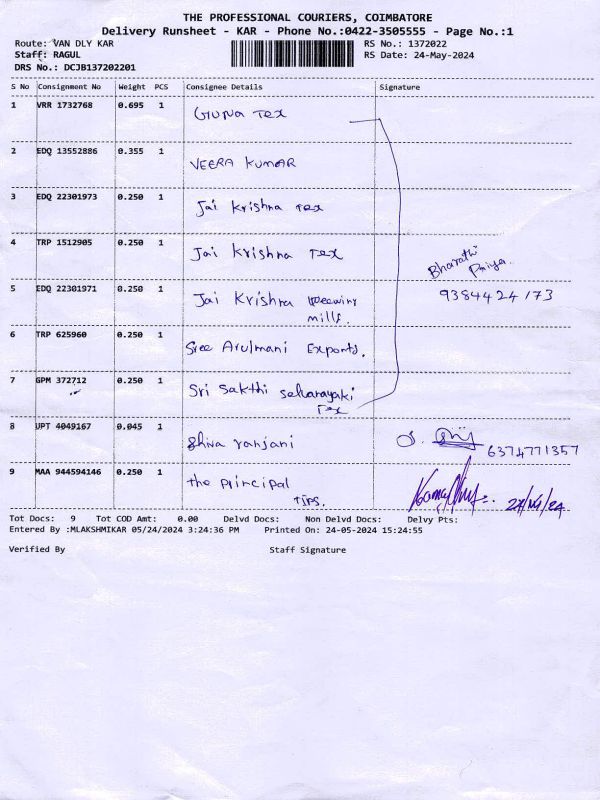 THE PROFESSIONAL COURIERS, COIMBATORE
Delivery Runsheet - KAR - Phone No.:0422-3505555 - Page No.:1
Route: VAN DLY KAR RS No.: 1372022
Staff: RAGUL RS Date: 24-May-2024
DRS No.: DCJB137202201
S No Consignment No Weight PCS Consignee Details Signature
1 VRR 1732768 0.695 1 Guna Tex
2 EDQ 13552886 0.355 1 VEERA KUMAR
3 EDQ 22301973 0.250 1 Jai Krishna Tex
4 TRP 1512905 0.250 1 Jai Krishna Tex
Bharathi
Priya.
5 EDQ 22301971 0.250 1 Jai Krishna weaving 9384424173
mills.
6 TRP 625960 0.250 1 Sree Arulmani Exports.
7 GPM 372712 0.250 1 Sri Sakthi
Tex
8 UPT 4049167 0.045 1 Shiva ranjani 6374771357
9 MAA 944594146 0.250 1 the principal
TIPS.
Tot Docs: 9 Tot COD Amt: 0.00 Delvd Docs: Non Delvd Docs: Delvy Pts:
Entered By :MLAKSHMIKAR 05/24/2024 3:24:36 PM Printed On: 24-05-2024 15:24:55
Verified By Staff Signature